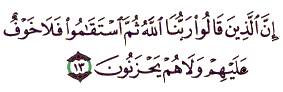 إِنَّ ٱلَّذِينَ قَالُوا۟ رَبُّنَا ٱللَّهُ ثُمَّ ٱسْتَقَـٰمُوا۟ فَلَا خَوْفٌ
عَلَيْهِمْ وَلَا هُمْ يَحْزَنُونَ ١٣